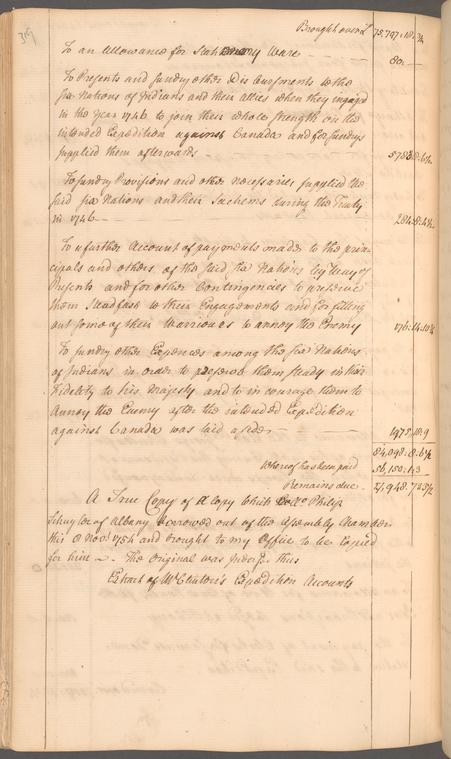 319
Brought over £ 75,797:10:3¾
To an Allowance for Stationary Ware 80:
To Presents and sundry other Disbursments to the
six Nations of Indians and their Allies when they engaged
in the Year 1746 to join their whole Strength on the
intended Expedition against Canada and for sundrys
supplied them afterwards 5783:8:6½
To sundry Provisions and other necessaries supplied the
said six Nations and their Sachems during the Treaty
in 1746 284:8:4½
To a further Account of payments made to the prin-
cipals and others of the said six Nations by Way of
Presents and for other Contingencies to preserve
them Steadfast to their Engagements and for fitting
out some of their Warriours to annoy the Enemy 176:14:10¾
To sundry other Expences among the six Nations
of Indians in order to preserve them steady in their
Fidelity to his Majesty and to incourage them to
Annoy the Enemy after the intended Expedition
against Canada was laid aside 1975:18:9
84,098:8:6½
Whereof has been paid 56,150:1:3
Remains due 27,948:7:3½
A True Copy of A Copy which Philip
Schuyler of Albany borrowed out of the Assembly Chamber
this 8 Novr. 1754 and brought to my Office to be Copied
for him The Original was Indorsed thus
Extract of Mr Clinton's Expedition Accounts